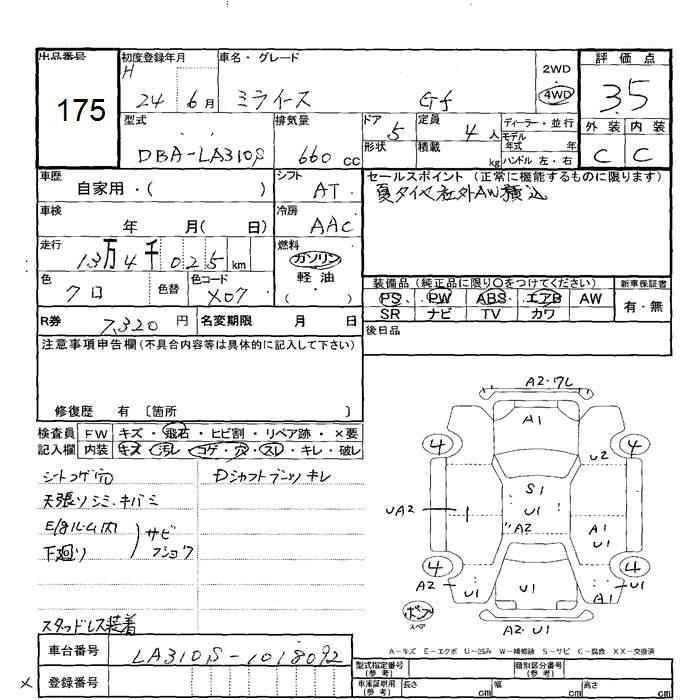 出品番号 初度登録年月 車名・グレード 2WD 評価点
175 H 24 6月 ミライース Gf 4WD 3.5
型式 排気量 ドア 5 定員 4人 ディーラー・並行 外装 内装
DBA-LA310S 660cc 形状 積載 kg モデル年式 年 C C
ハンドル 左・右
車歴 自家用・( ) シフト AT セールスポイント (正常に機能するものに限ります)
夏タイヤ社外AW積込
車検 年 月( 日) 冷房 AAC
走行 13万4千025km 燃料 ガソリン
軽油
( )
色 クロ 色替 色コード X07
装備品 (純正品に限り○をつけてください) 新車保証書
PS PW ABS エアB AW 有・無
SR ナビ TV カワ
R券 7,320円 名変期限 月 日 後日品
注意事項申告欄(不具合内容等は具体的に記入して下さい)
修復歴 有 〔箇所 〕
検査員 FW キズ・飛石・ヒビ割・リペア跡・×要
記入欄 内装 キズ・汚レ・コゲ・穴・スレ・キレ・破レ
シートコゲ穴 Dシャフトブーツキレ
天張りシミ・キバミ
E/gルーム内 サビ
下廻り フショク
スタッドレス装着
A2・ワレ
A1
4 4
U2
S1
U1
UA2 A2 A1
U1
4 4
A2 U1 U1 A1 U1
スペア A2・U1
A-キズ E-エクボ U-凹み W-補修跡 S-サビ C-腐食 XX-交換済
車台番号 LA310S-1018092 型式指定番号(参考) 類別区分番号(参考)
× 登録番号 車庫証明用(参考) 長さ cm 幅 cm 高さ cm